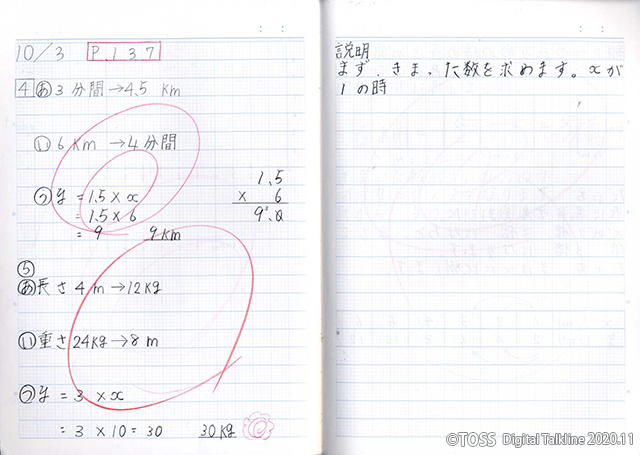 10/3 P.137
4 あ 3分間→4.5 Km
い 6 Km →4分間
う y = 1.5 × x
= 1.5 × 6
= 9 9 Km
1.5
× 6
9.0
5
あ 長さ 4 m →12kg
い 重さ 24kg → 8 m
う y = 3 × x
= 3 × 10 = 30 30kg
説明
まず、きまった数を求めます。xが
1 の時
©TOSS Digital Talkline 2020.11